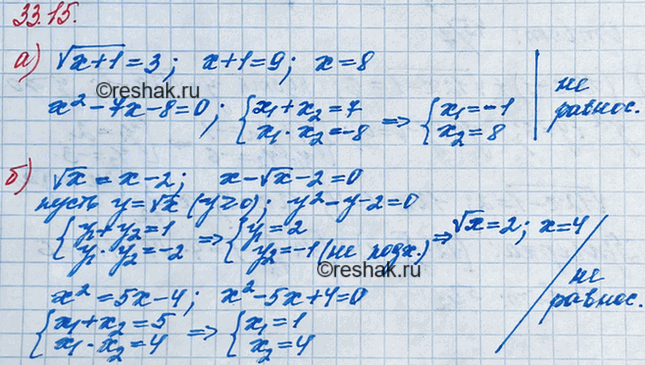 33.15.
а) √x+1 = 3; x+1=9; x=8
©reshak.ru
x²-7x-8=0; { x₁+x₂=7 x₁·x₂=-8 => { x₁=-1 x₂=8 | не равнос.
б) √x = x-2; x-√x-2=0
пусть y=√x (y≥0); y²-y-2=0
{ y₁+y₂=1 y₁·y₂=-2 => { y₁=2 y₂=-1 (не подх.) => √x=2; x=4
©reshak.ru
x²=5x-4; x²-5x+4=0
{ x₁+x₂=5 x₁·x₂=4 => { x₁=1 x₂=4 / не равнос.